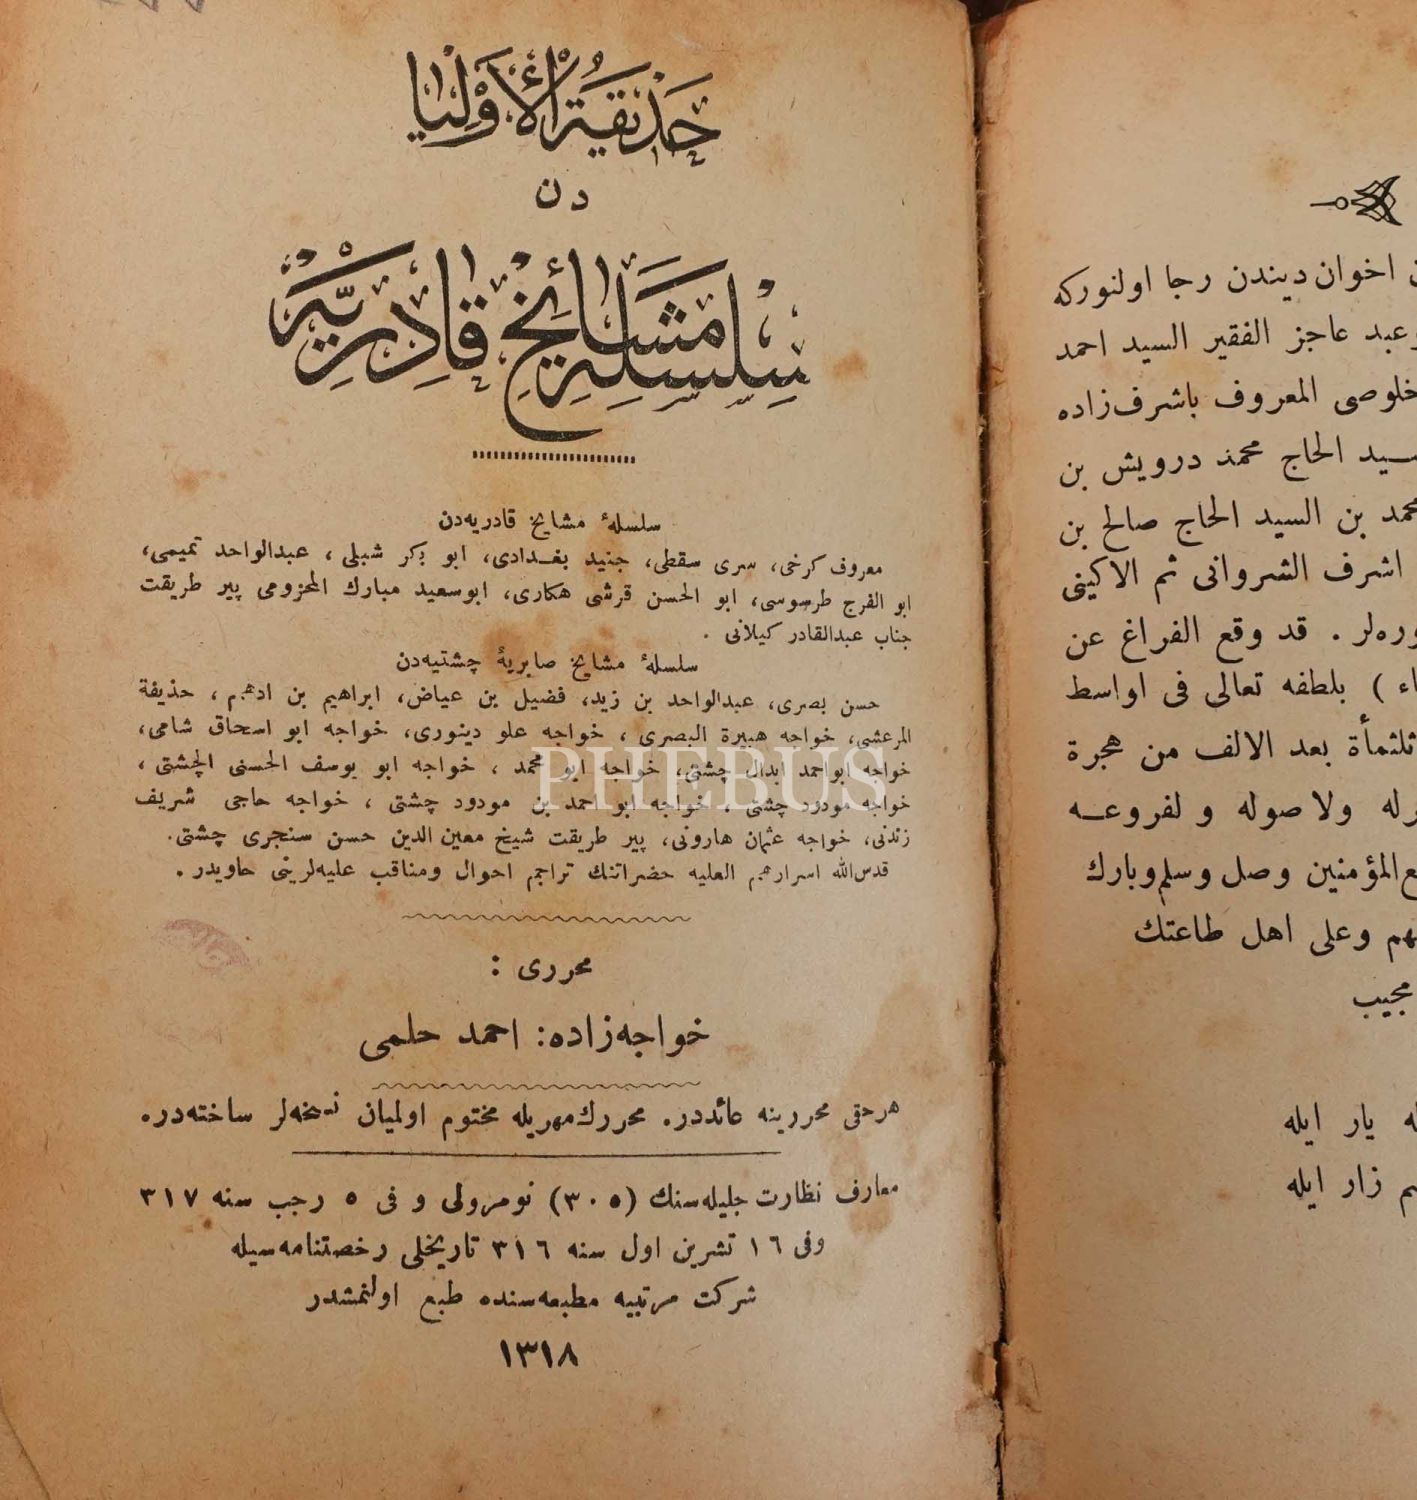 حَديقَةُ الأَوْلِيَا
دن
سِلسِلهِٔ مَشَائخِ قَادِرِيَّه
سلسلهٔ مشایخ قادریه‌دن
معروف کرخی، سری سقطی، جنید بغـدادی، ابو بکر شبلی، عبدالواحد تمیمی،
ابو الفرج طرسوسی، ابو الحسن قرشی هکاری، ابوسعید مبارك المخزومی پیر طریقت
جناب عبدالقادر کیلانی .
سلسلهٔ مشایخ صابریهٔ چشتیه‌دن
حسن بصری، عبدالواحد بن زید، فضیل بن عیاض، ابراهیم بن ادهم، حذیفة
المرعشی، خواجه هبیرة البصری، خواجه علو دینوری، خواجه ابو اسحاق شامی،
خواجه ابواحمد ابدال چشتی، خواجه ابو محمد، خواجه ابو یوسف الحسنی الچشتی،
خواجه مودود چشتی، خواجه ابو احمد بن مودود چشتی، خواجه حاجی شریف
زندنی، خواجه عثمان هارونی، پیر طریقت شیخ معین الدین حسن سنجری چشتی.
قدس‌الله اسرارهم العلیه حضراتنك تراجم احوال ومناقب علیه‌لرینی حاویدر.
PHEBUS
محرری :
خواجه‌زاده: احمد حلمی
هرحقی محررینه عائددر. محررك مهریله مختوم اولمیان نسخه‌لر ساخته‌در.
معارف نظارت جلیله‌سنك (٣٠٥) نومرولی و فی ٥ رجب سنه ٣١٧
وفی ١٦ تشرین اول سنه ٣١٦ تاریخلی رخصتنامه‌سیله
شرکت مرتبیه مطبعه‌سنده طبع اولنمشدر
١٣١٨
اخوان دیندن رجا اولنورکه
عبد عاجز الفقیر السید احمد
خلوصی المعروف باشرف‌زاده
الحاج محمد درویش بن
محمد بن السید الحاج صالح بن
اشرف الشروانی ثم الاکینی
قد وقع الفراغ عن
) بلطفه تعالی فی اواسط
بعد الالف من هجرة
ولاصوله و لفروعـه
المؤمنین وصل وسلم وبارك
وعلی اهل طاعتك
مجیب
یار ایله
زار ایله